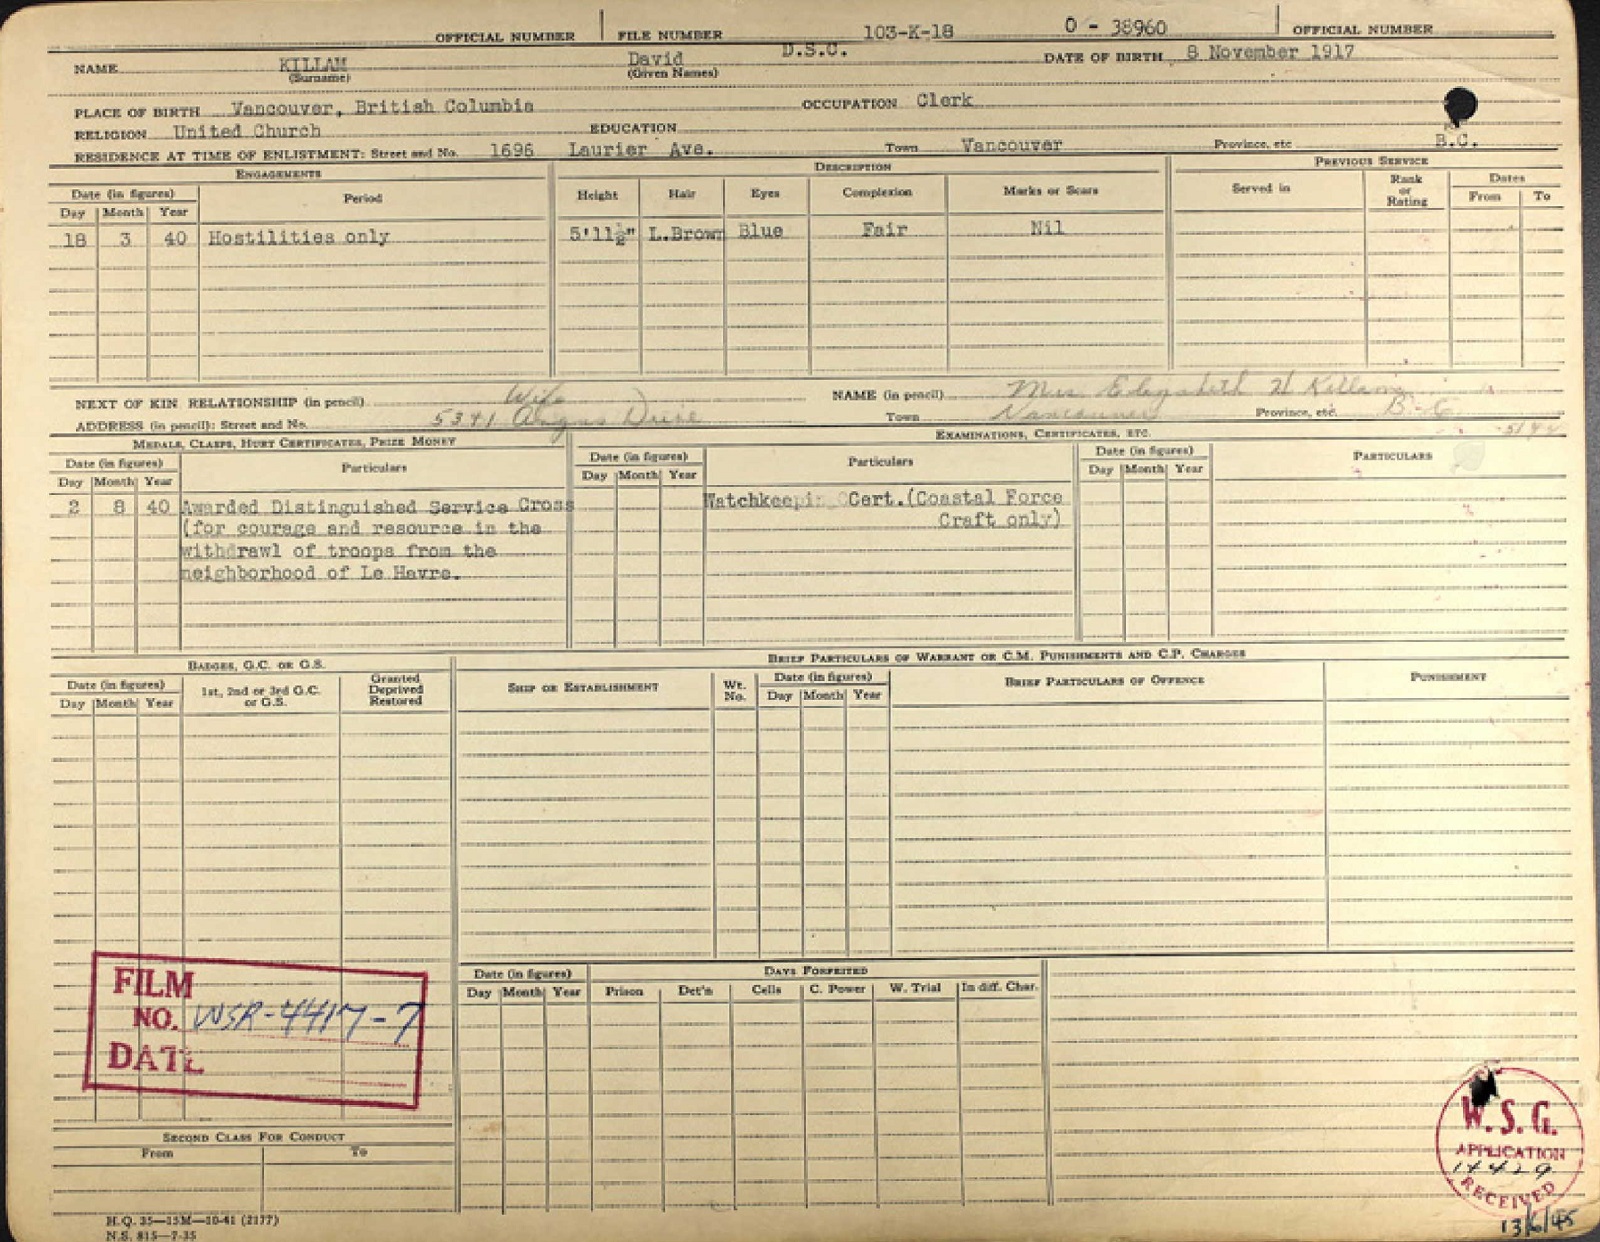 OFFICIAL NUMBER FILE NUMBER 103-K-18 O - 38960 OFFICIAL NUMBER
NAME KILLAM David D.S.C. DATE OF BIRTH 8 November 1917
(Surname) (Given Names)
PLACE OF BIRTH Vancouver, British Columbia OCCUPATION Clerk
RELIGION United Church EDUCATION
RESIDENCE AT TIME OF ENLISTMENT: Street and No. 1696 Laurier Ave. Town Vancouver Province, etc B.C.
ENGAGEMENTS DESCRIPTION PREVIOUS SERVICE
Date (in figures) Period Height Hair Eyes Complexion Marks or Scars Served in Rank or Rating Dates
Day Month Year From To
18 3 40 Hostilities only 5'11½" L.Brown Blue Fair Nil
NEXT OF KIN RELATIONSHIP (in pencil) Wife NAME (in pencil) Mrs Elizabeth H Killam
ADDRESS (in pencil): Street and No. 5341 Angus Drive Town Vancouver Province, etc. B.C.
MEDALS, CLASPS, HURT CERTIFICATES, PRIZE MONEY EXAMINATIONS, CERTIFICATES, ETC.
Date (in figures) Particulars Date (in figures) Particulars Date (in figures) PARTICULARS
Day Month Year Day Month Year Day Month Year
2 8 40 Awarded Distinguished Service Cross Watchkeeping Cert.(Coastal Force
(for courage and resource in the Craft only)
withdrawl of troops from the
neighborhood of Le Havre.
BADGES, G.C. OR G.S. BRIEF PARTICULARS OF WARRANT OR C.M. PUNISHMENTS AND C.P. CHARGES
Date (in figures) 1st, 2nd or 3rd G.C. or G.S. Granted Deprived Restored SHIP OR ESTABLISHMENT Wt. No. Date (in figures) BRIEF PARTICULARS OF OFFENCE PUNISHMENT
Day Month Year Day Month Year
FILM
NO. WSR-4417-7
DATE
Date (in figures) DAYS FORFEITED
Day Month Year Prison Det'n Cells C. Power W. Trial In diff. Char.
SECOND CLASS FOR CONDUCT
From To
W.S.G.
APPLICATION
14429
RECEIVED
13/6/45
H.Q. 35—15M—10-41 (2177)
N.S. 815—7-35